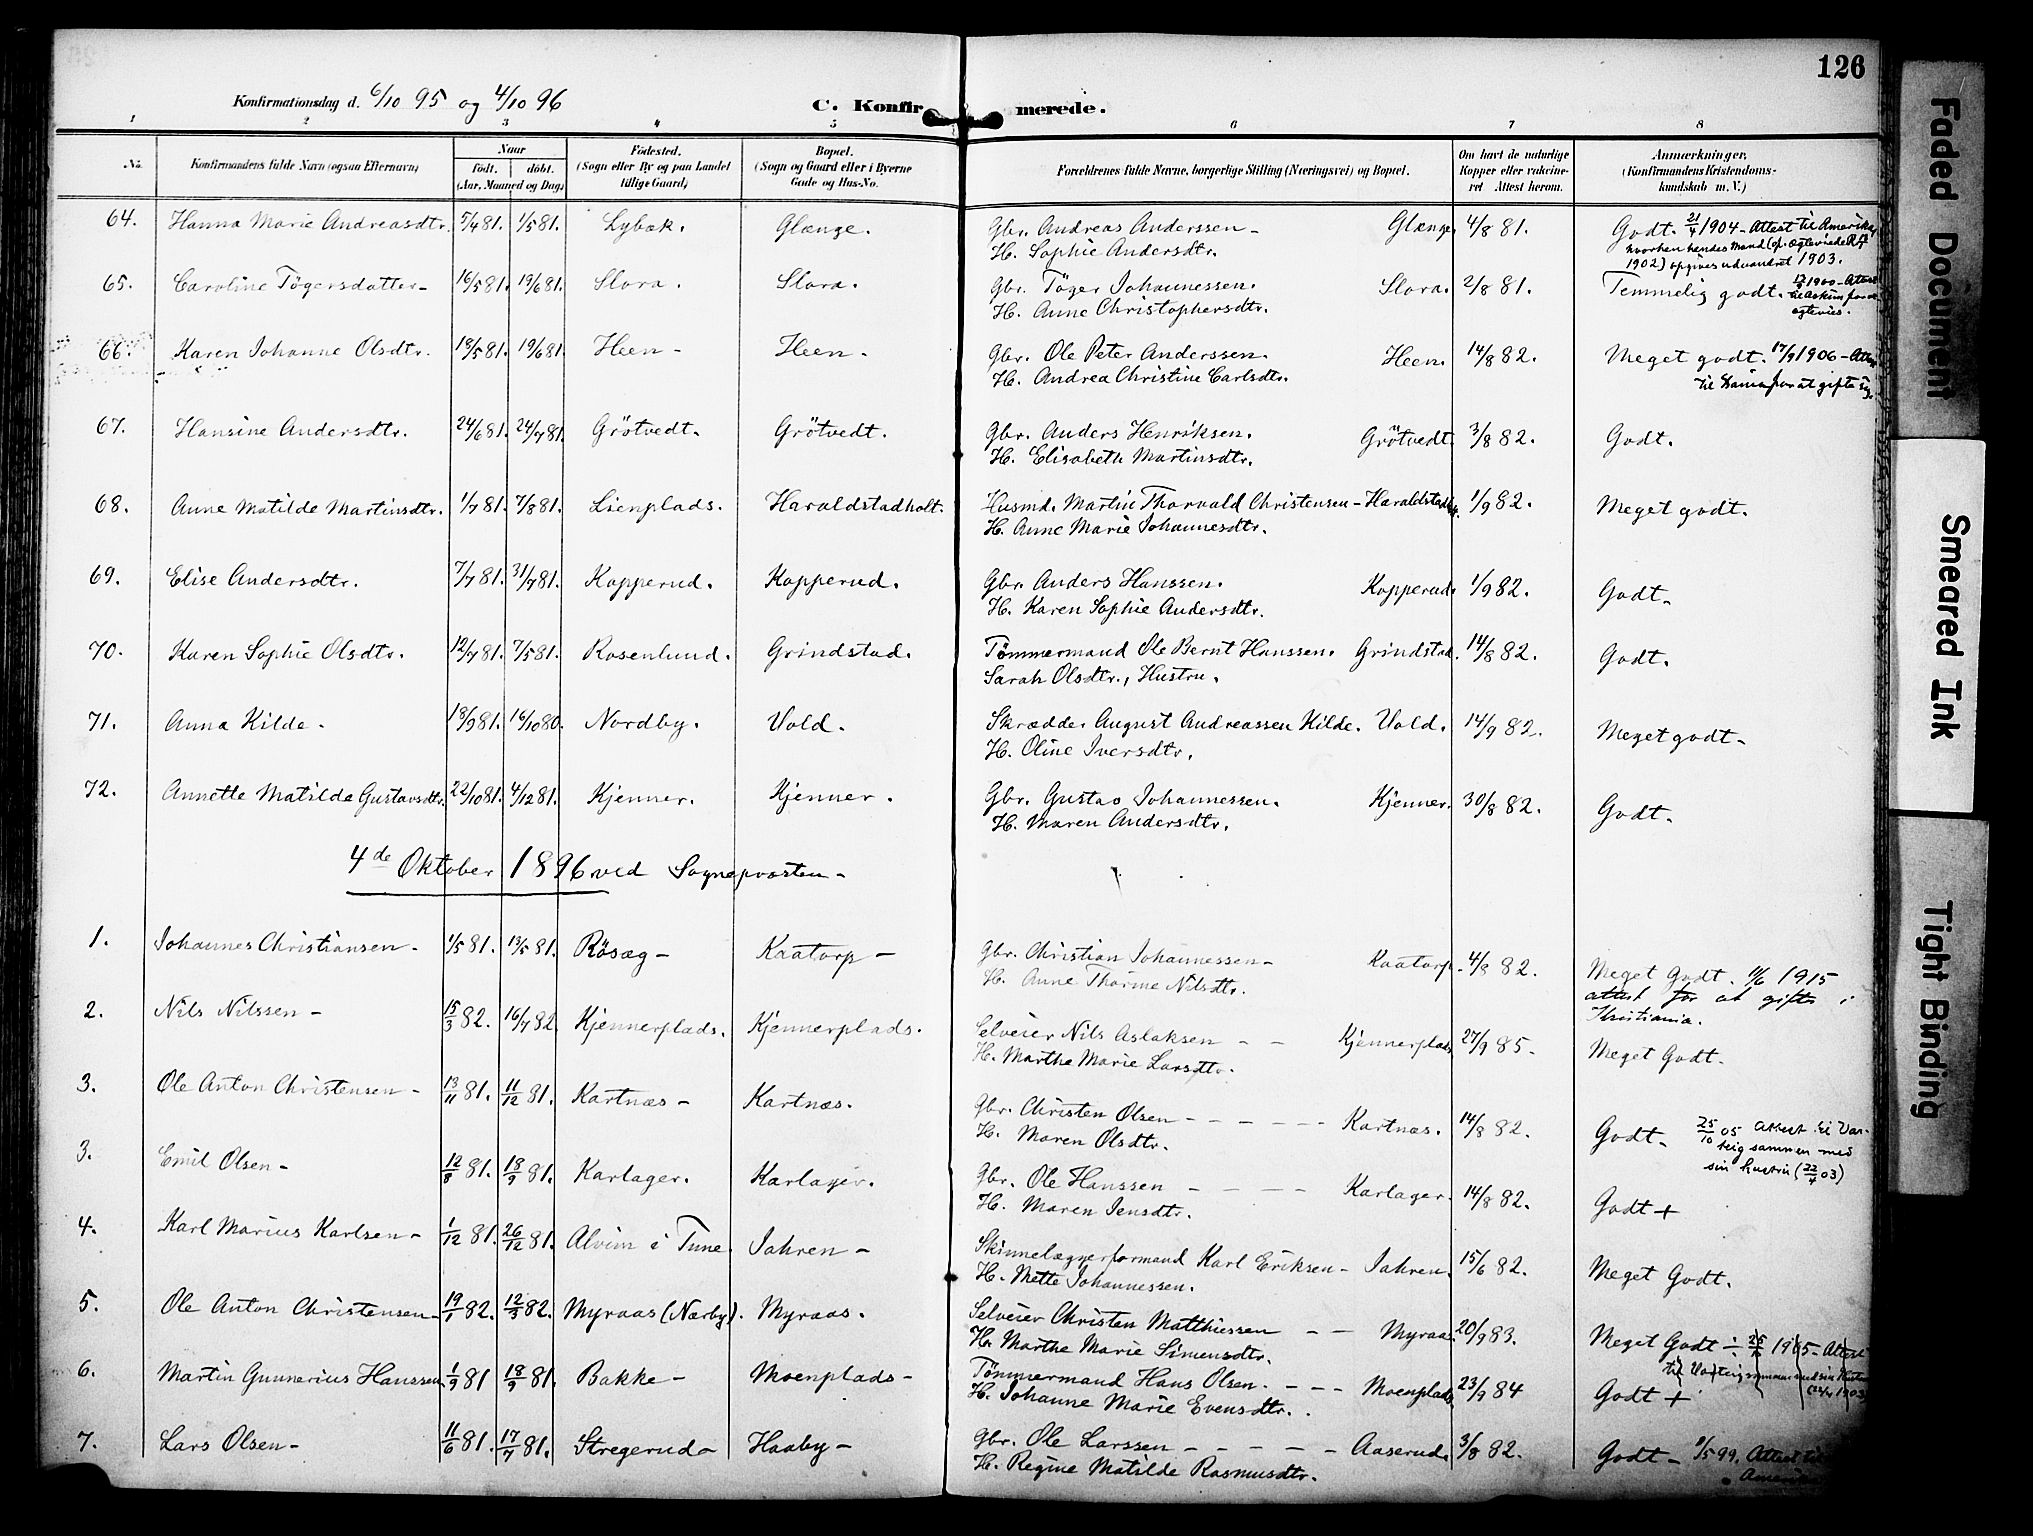 126
Konfirmationsdag d. 6/10 95 og 4/10 96
C. Konfirmerede.
1 2 3 4 5 6 7 8
No.
Konfirmandens fulde Navn (ogsaa Efternavn)
Naar
født. døbt.
(Aar, Maaned og Dag)
Fødested.
(Sogn eller By og paa Landet
tillige Gaard)
Bopæl.
(Sogn og Gaard eller i Byerne
Gade og Hus-No.
Forældrenes fulde Navne, borgerlige Stilling (Næringsvei) og Bopæl.
Om havt de naturlige
Kopper eller vakcine-
ret Attest herom.
Anmærkninger,
(Konfirmandens Kristendoms-
kundskab m. V.)
64. Hanna Marie Andreasdtr. 5/4 81. 1/5 81. Lybæk. Glænge. Gbr. Andreas Anderssen - Glænge 4/8 81. Godt. 21/4 1904 - Attest til Amerika,
H. Sophie Andersdtr. hvorhen hendes Mand (op. ægteviede
1902) opgives udvandret 1903.
65. Caroline Tögersdatter - 16/5 81. 19/6 81. Slora. Slora. Gbr. Töger Johannessen. Slora. 2/8 81. Temmelig godt. 1900 - Attest
H. Anne Christophersdtr. til Askim for at
ægtevies.
66. Karen Johanne Olsdtr. 18/5 81. 19/6 81. Heen - Heen. Gbr. Ole Peter Anderssen. Heen. 14/8 82. Meget godt. 17/9 1906 - Attest
H. Andrea Christine Carlsdtr. til for at gifte sig
67. Hansine Andersdtr. 24/6 81. 24/7 81. Grötvedt. Grötvedt. Gbr. Anders Henriksen. Grötvedt. 3/8 82. Godt.
H. Elisabeth Martinsdtr.
68. Anne Matilde Martinsdtr. 1/7 81. 7/8 81. Lienplads. Haraldstadholt. Husmd. Martin Thorvald Christensen - Haraldstadh. 1/9 82. Meget godt.
H. Anne Marie Johannesdtr.
69. Elise Andersdtr. 7/7 81. 31/7 81. Kopperud. Kopperud. Gbr. Anders Hanssen. Kopperud. 1/9 82. Godt.
H. Karen Sophie Andersdtr.
70. Karen Sophie Olsdtr. 12/7 81. 7/5 81. Rosenlund. Grindstad. Tømmermand Ole Bernt Hanssen. Grindstad. 14/8 82. Godt.
Sarah Olsdtr., Hustru.
71. Anna Kilde - 18/9 81. 16/10 80. Nordby. Vold. Skrædder August Andreassen Kilde. Vold. 14/9 82. Meget godt -
H. Oline Iversdtr.
72. Annette Matilde Gustavsdtr. 22/10 81. 4/12 81. Kjenner. Kjenner. Gbr. Gustav Johannessen. Kjenner. 30/8 82. Godt.
H. Maren Andersdtr.
4de Oktober 1896 ved Sognepræsten -
1. Johannes Christiansen - 1/5 81. 13/5 81. Rösæg - Kaatorp - Gbr. Christian Johannessen - Kaatorp - 4/8 82. Meget Godt. 11/6 1915
H. Anne Thorine Nilsdtr. attest for at gifte i
Kristiania.
2. Nils Nilssen - 15/3 82. 16/7 82. Kjennerplads. Kjennerplads. Selveier Nils Aslaksen - - Kjennerplads 27/9 85. Meget Godt.
H. Marthe Marie Larsdtr.
3. Ole Anton Christensen - 13/11 81. 11/12 81. Kartnæs - Kartnæs. Gbr. Christen Olsen - - - - - Kartnæs. 14/8 82. Godt - 25/10 05 Attest til Var-
H. Maren Olsdtr. teig sammen med
sin hustru (22/4 03)
3. Emil Olsen - 12/8 81. 18/9 81. Karlager. Karlager. Gbr. Ole Hanssen - - - - Karlager. 14/8 82. Godt +
H. Maren Jensdtr.
4. Karl Marius Karlsen - 1/12 81. 26/12 81. Alvim i Tune. Jahren - Skinnelægnerformand Karl Eriksen - Jahren. 15/6 82. Meget Godt.
H. Mette Johannessen.
5. Ole Anton Christensen - 19/1 82. 12/3 82. Myraas (Nærby). Myraas. Selveier Christen Matthiessen - - Myraas. 20/9 83. Meget Godt ÷ 25/ 1905 - Attest
H. Marthe Marie Simensdtr. til Varteig sammen med sin Hustru
6. Martin Gunnerius Hanssen. 1/9 81 18/9 81. Bakke - Moenplads - Tömmermand Hans Olsen. - - - Moenplads 23/9 84 Godt +
H. Johanne Marie Evensdtr.
7. Lars Olsen - 11/6 81. 17/7 81. Stregerud - Haaby - Gbr. Ole Larssen - - - - - Aaserud. 3/8 82. Godt - /5 99. Attest til
H. Regine Matilde Rasmusdtr. Amerika
Faded Document
Smeared Ink
Tight Binding